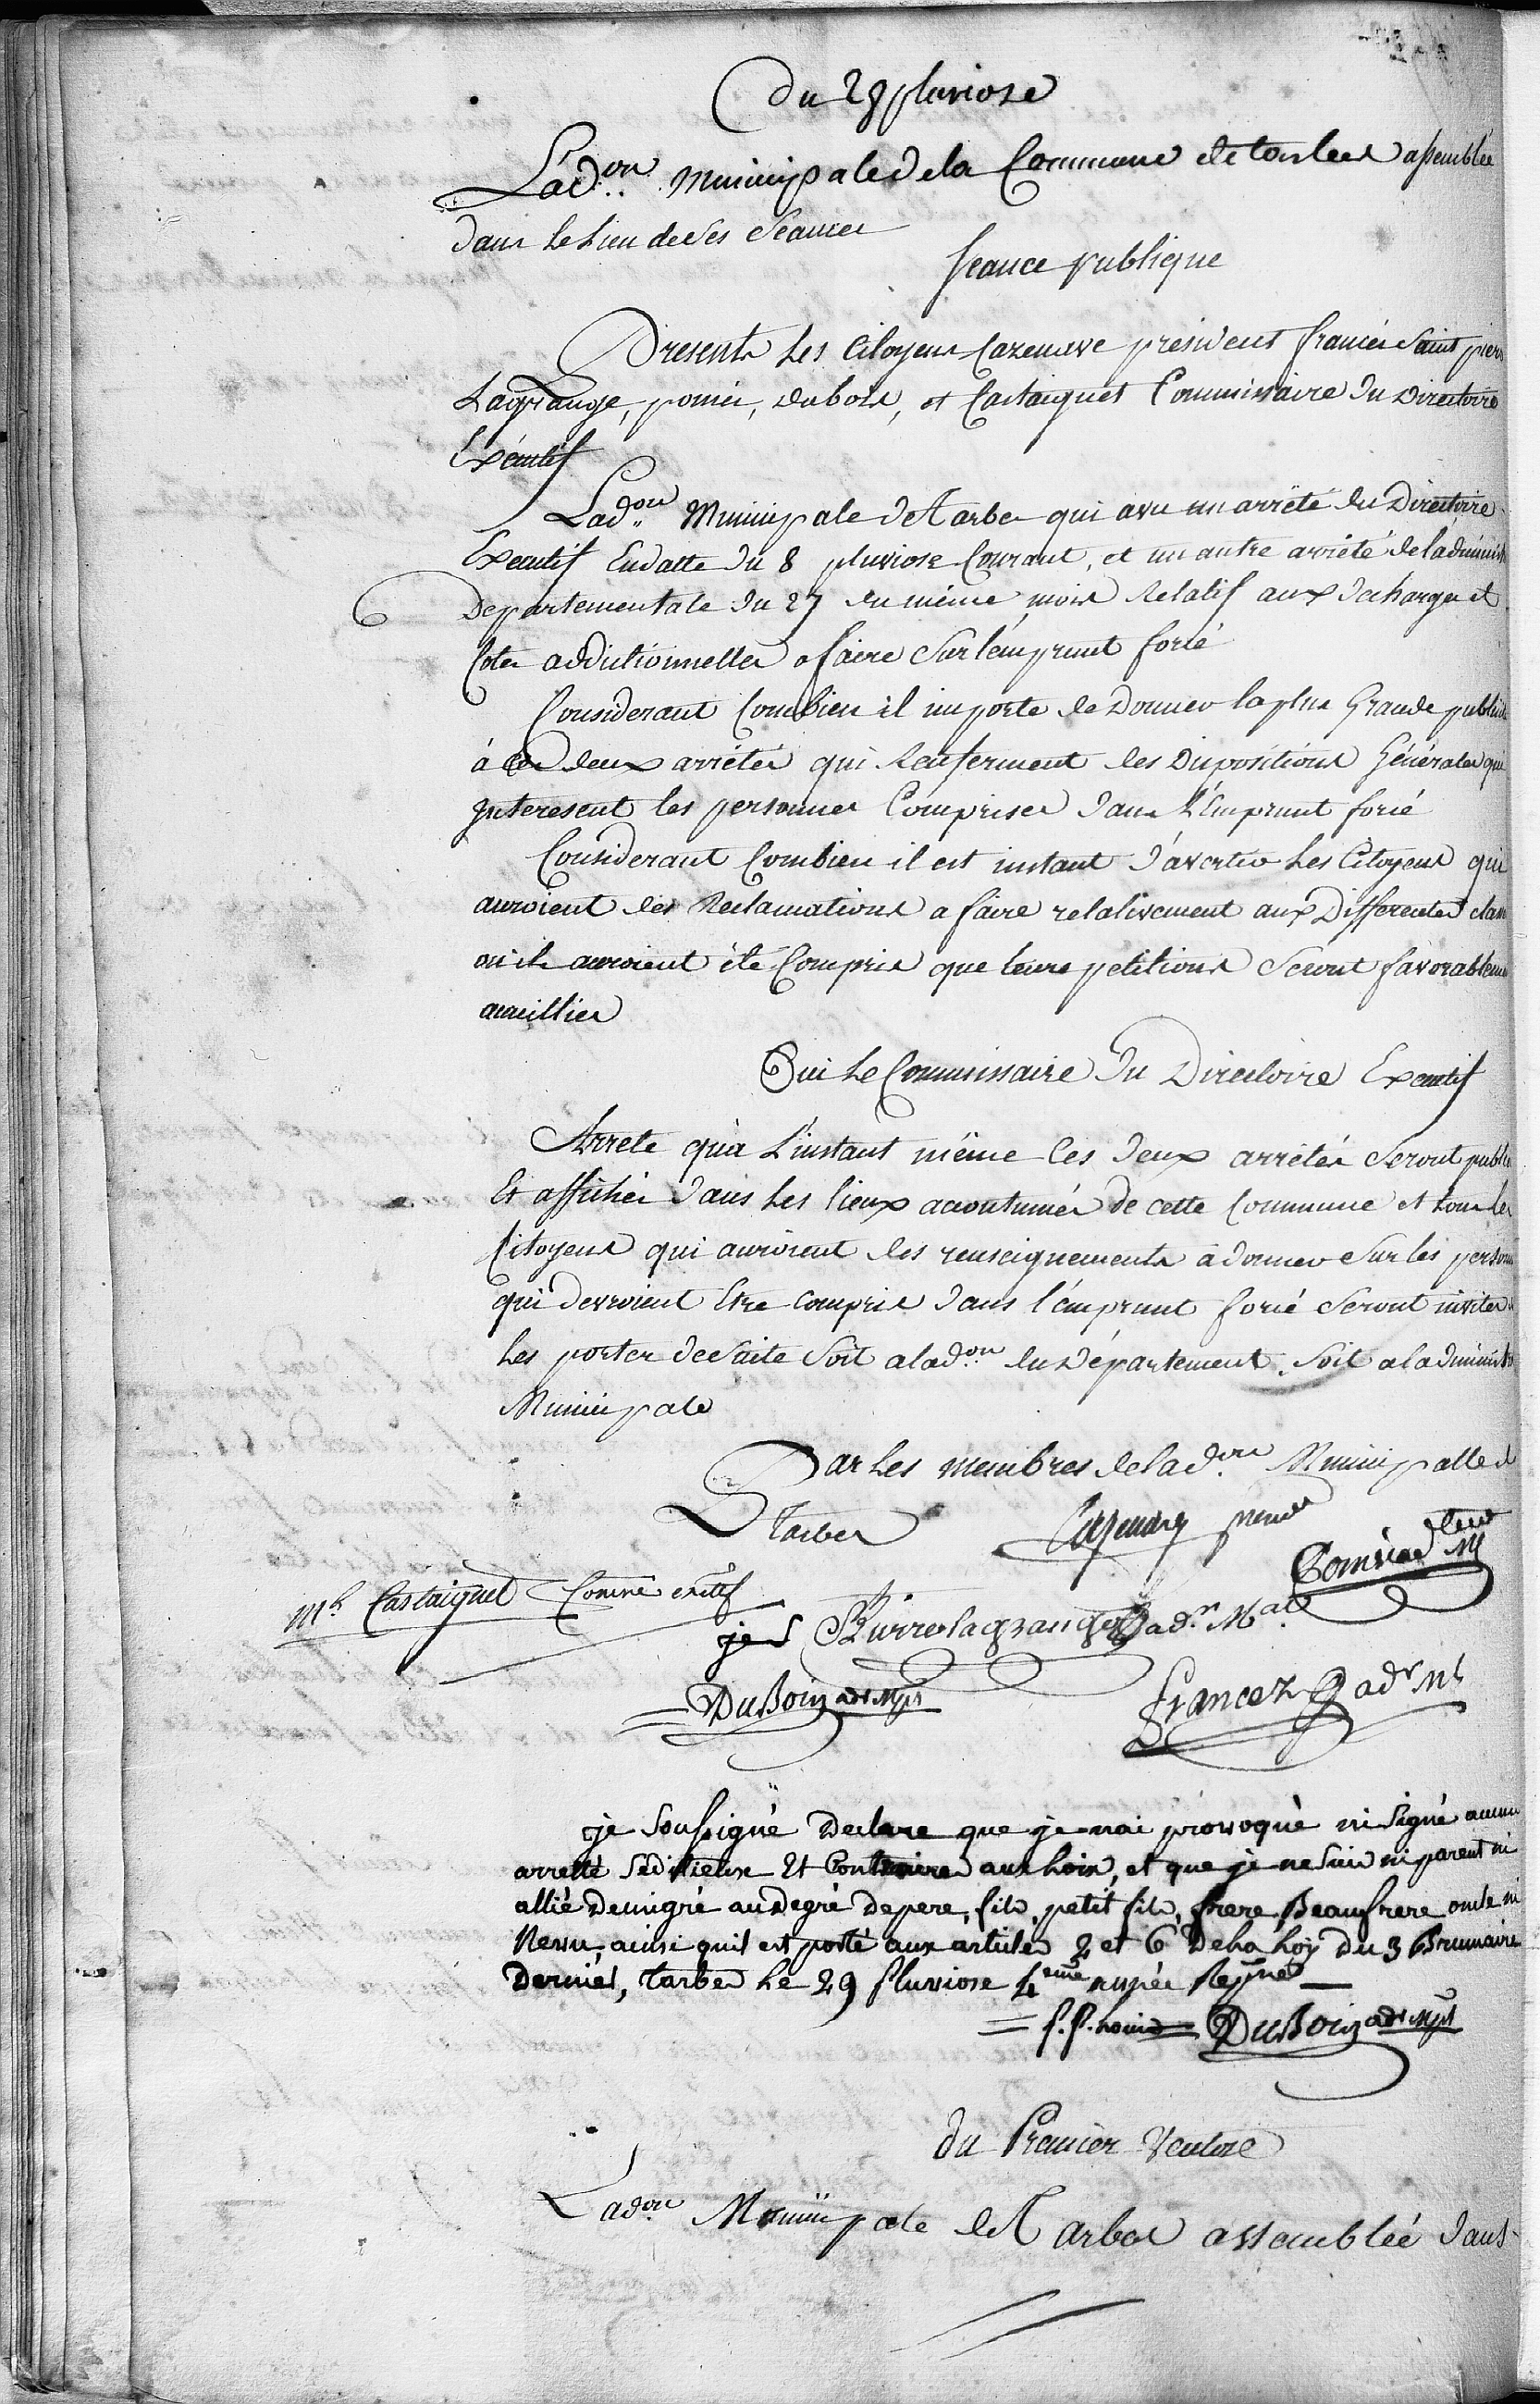 Du 28 pluviose
L'ad.on municipale de la Commune de tarbes assemblée
dans le lieu de ses séances
séance publique
Présents les citoyens Cazenave président francéz Saint pierre
Lagrange, pomiés, dubois, et Castaignet Commissaire du Directoire
Exécutif
L'ad.on Municipale de Tarbes qui a vu un arrêté du Directoire
Executif En datte du 8 pluviose Courant, et un autre arrêté de l'administ
Departementale du 27 du même mois Relatif aux decharges et
Cotes additionnelles a faire Sur l'emprunt forcé
Considerant Combien il importe de Donner la plus Grande publicité
à ces deux arrêtés qui Renferment des Dispositions Générales qui
Interesent les personnes Comprises dans L'Emprunt forcé
Considerant Combien il est instant d'avertir Les Citoyens qui
auroient des Reclamations a faire relativement aux Differentes class
où ils auroient été Compris que leurs petitions Seront favorablem
accueillies
Oui Le Commissaire du Directoire Executif
Arrete qu'a L'instant même les deux arrêtés Seront publiés
Et affichés dans Les lieux accoutumés de cette Commune et tous les
Citoyens qui auroient des renseignements à donner Sur les person
qui devroient Etre compris dans l'emprunt forcé Seront invités
Les porter de Suite Soit a l'ad.on du Département, Soit a l'administ
Municipale
Par Les membres de l'ad.on Municipalle de
Tarbes Cazenave
m.l Castaignet Comre exctif
je S Pierrelagrange ad.r M.al
DuBois adr Mpl Francez adr Ml
je Soussigné Declare que je nai provoqué ni Signé aucun
arretté Séditieux Et Contraire aux Loix, et que je ne Suis ni parent ni
allié d'emigré au Degré de pere, fils, petit fils, frere Beaufrere oncle ni
Neveu, ainsi quil est porté aux articles 2 et 6 De La Loy du 3 Brumaire
Dernier, Tarbes Le 29 Pluviose 4eme année Repne
DuBois adr Mpl
du Premier Ventose
L'ad.on Municipale de Tarbes assemblée dans